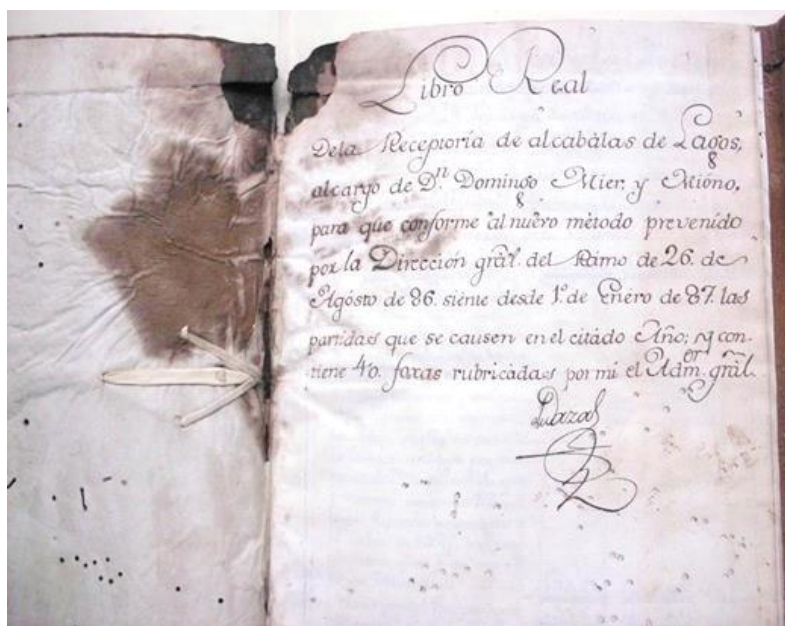 Libro Real
Dela Receptoría de alcabàlas de Lagos,
alcargo de D.n Domingo Mier, y Mióno,
para que conforme al nuévo mètodo prevenído
por la Direccion gràl. del Ramo de 26. de
Agósto de 86. siènte desde 1.º de Enéro de 87. las
partidas que se causen en el citádo Año; y con-
tiene 40. foxas rubricàdas por mi el Adm.or gràl.